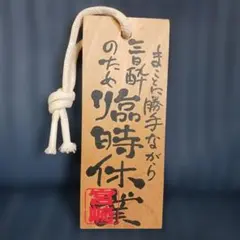 まことに勝手ながら
二日酔
のため
臨時休業
宮崎